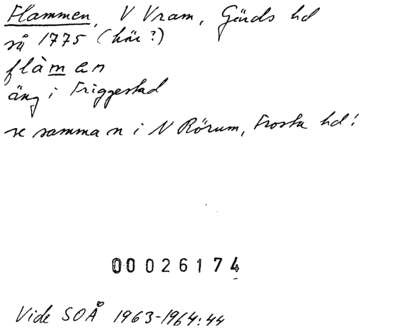 Flammen, V Vram, Gärds hd
så 1775 (här?)
flàmen
äng i Friggestad
se samma n i N Rörum, Frosta hd!
00026174
Vide SOÅ 1963-1964:44